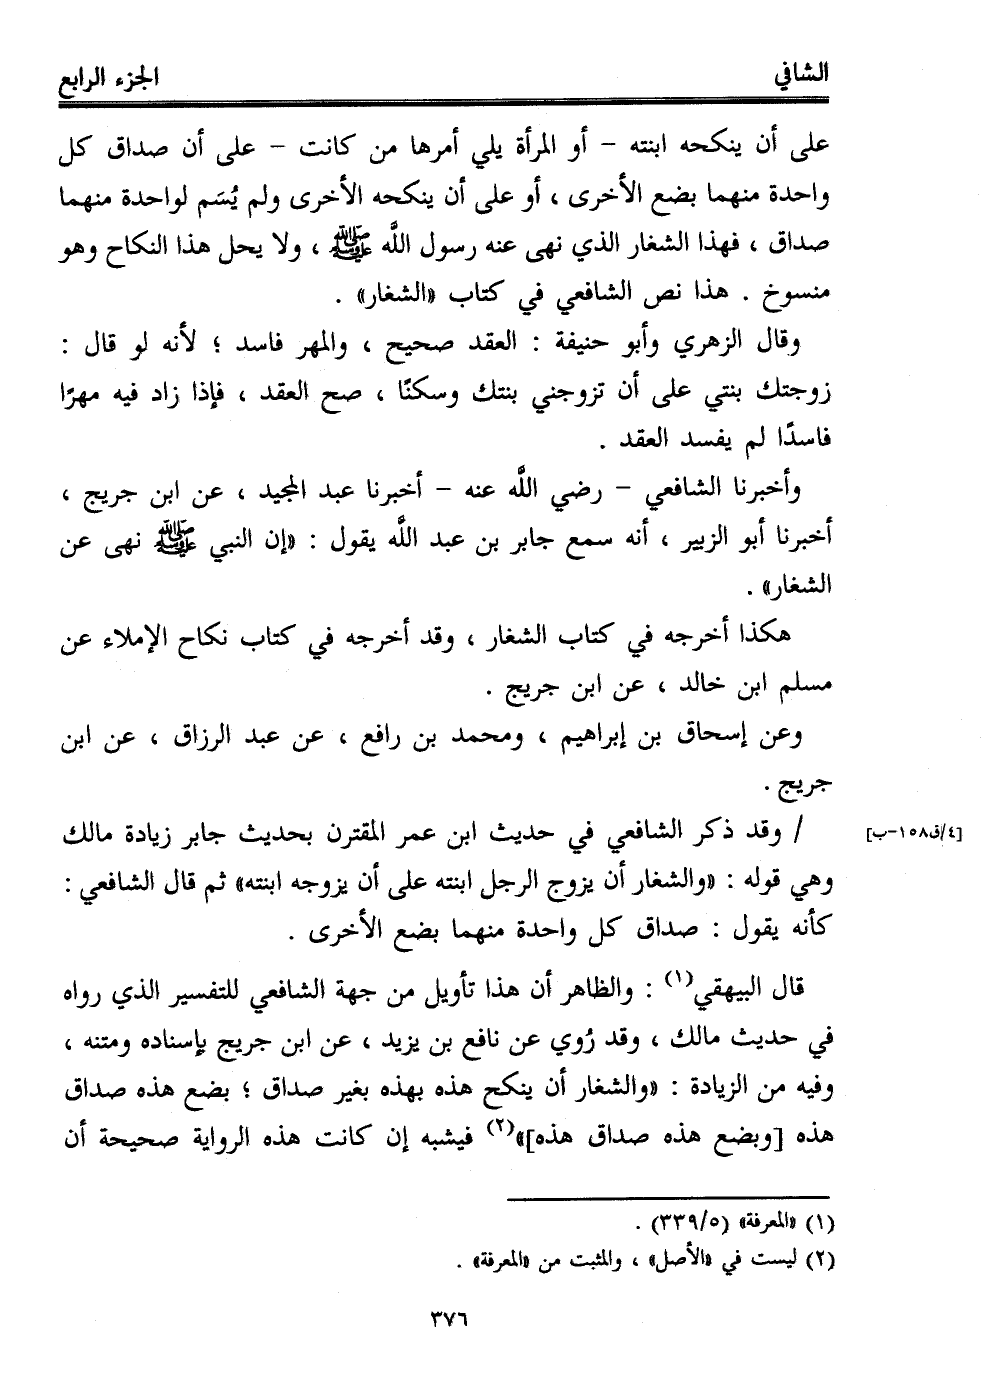 الشافي
الجزء الرابع
على أن ينكحه ابنته – أو المرأة يلي أمرها من كانت – على أن صداق كل
واحدة منهما بضع الأخرى ، أو على أن ينكحه الأخرى ولم يُسَم لواحدة منهما
صداق ، فهذا الشغار الذي نهى عنه رسول اللَّه ﷺ ، ولا يحل هذا النكاح وهو
منسوخ . هذا نص الشافعي في كتاب «الشغار» .
وقال الزهري وأبو حنيفة : العقد صحيح ، والمهر فاسد ؛ لأنه لو قال :
زوجتك بنتي على أن تزوجني بنتك وسكتا ، صح العقد ، فإذا زاد فيه مهرًا
فاسدًا لم يفسد العقد .
وأخبرنا الشافعي – رضي اللَّه عنه – أخبرنا عبد المجيد ، عن ابن جريج ،
أخبرنا أبو الزبير ، أنه سمع جابر بن عبد اللَّه يقول : «إن النبي ﷺ نهى عن
الشغار» .
هكذا أخرجه في كتاب الشغار ، وقد أخرجه في كتاب نكاح الإملاء عن
مسلم ابن خالد ، عن ابن جريج .
وعن إسحاق بن إبراهيم ، ومحمد بن رافع ، عن عبد الرزاق ، عن ابن
جريج .
/ وقد ذكر الشافعي في حديث ابن عمر المقترن بحديث جابر زيادة مالك
[٤/ق١٥٨-ب]
وهي قوله : «والشغار أن يزوج الرجل ابنته على أن يزوجه ابنته» ثم قال الشافعي :
كأنه يقول : صداق كل واحدة منهما بضع الأخرى .
قال البيهقي(١) : والظاهر أن هذا تأويل من جهة الشافعي للتفسير الذي رواه
في حديث مالك ، وقد رُوي عن نافع بن يزيد ، عن ابن جريج بإسناده ومتنه ،
وفيه من الزيادة : «والشغار أن ينكح هذه بهذه بغير صداق ؛ بضع هذه صداق
هذه [وبضع هذه صداق هذه]»(٢) فيشبه إن كانت هذه الرواية صحيحة أن
(١) «المعرفة» (٥/٣٣٩) .
(٢) ليست في «الأصل» ، والمثبت من «المعرفة» .
٣٧٦